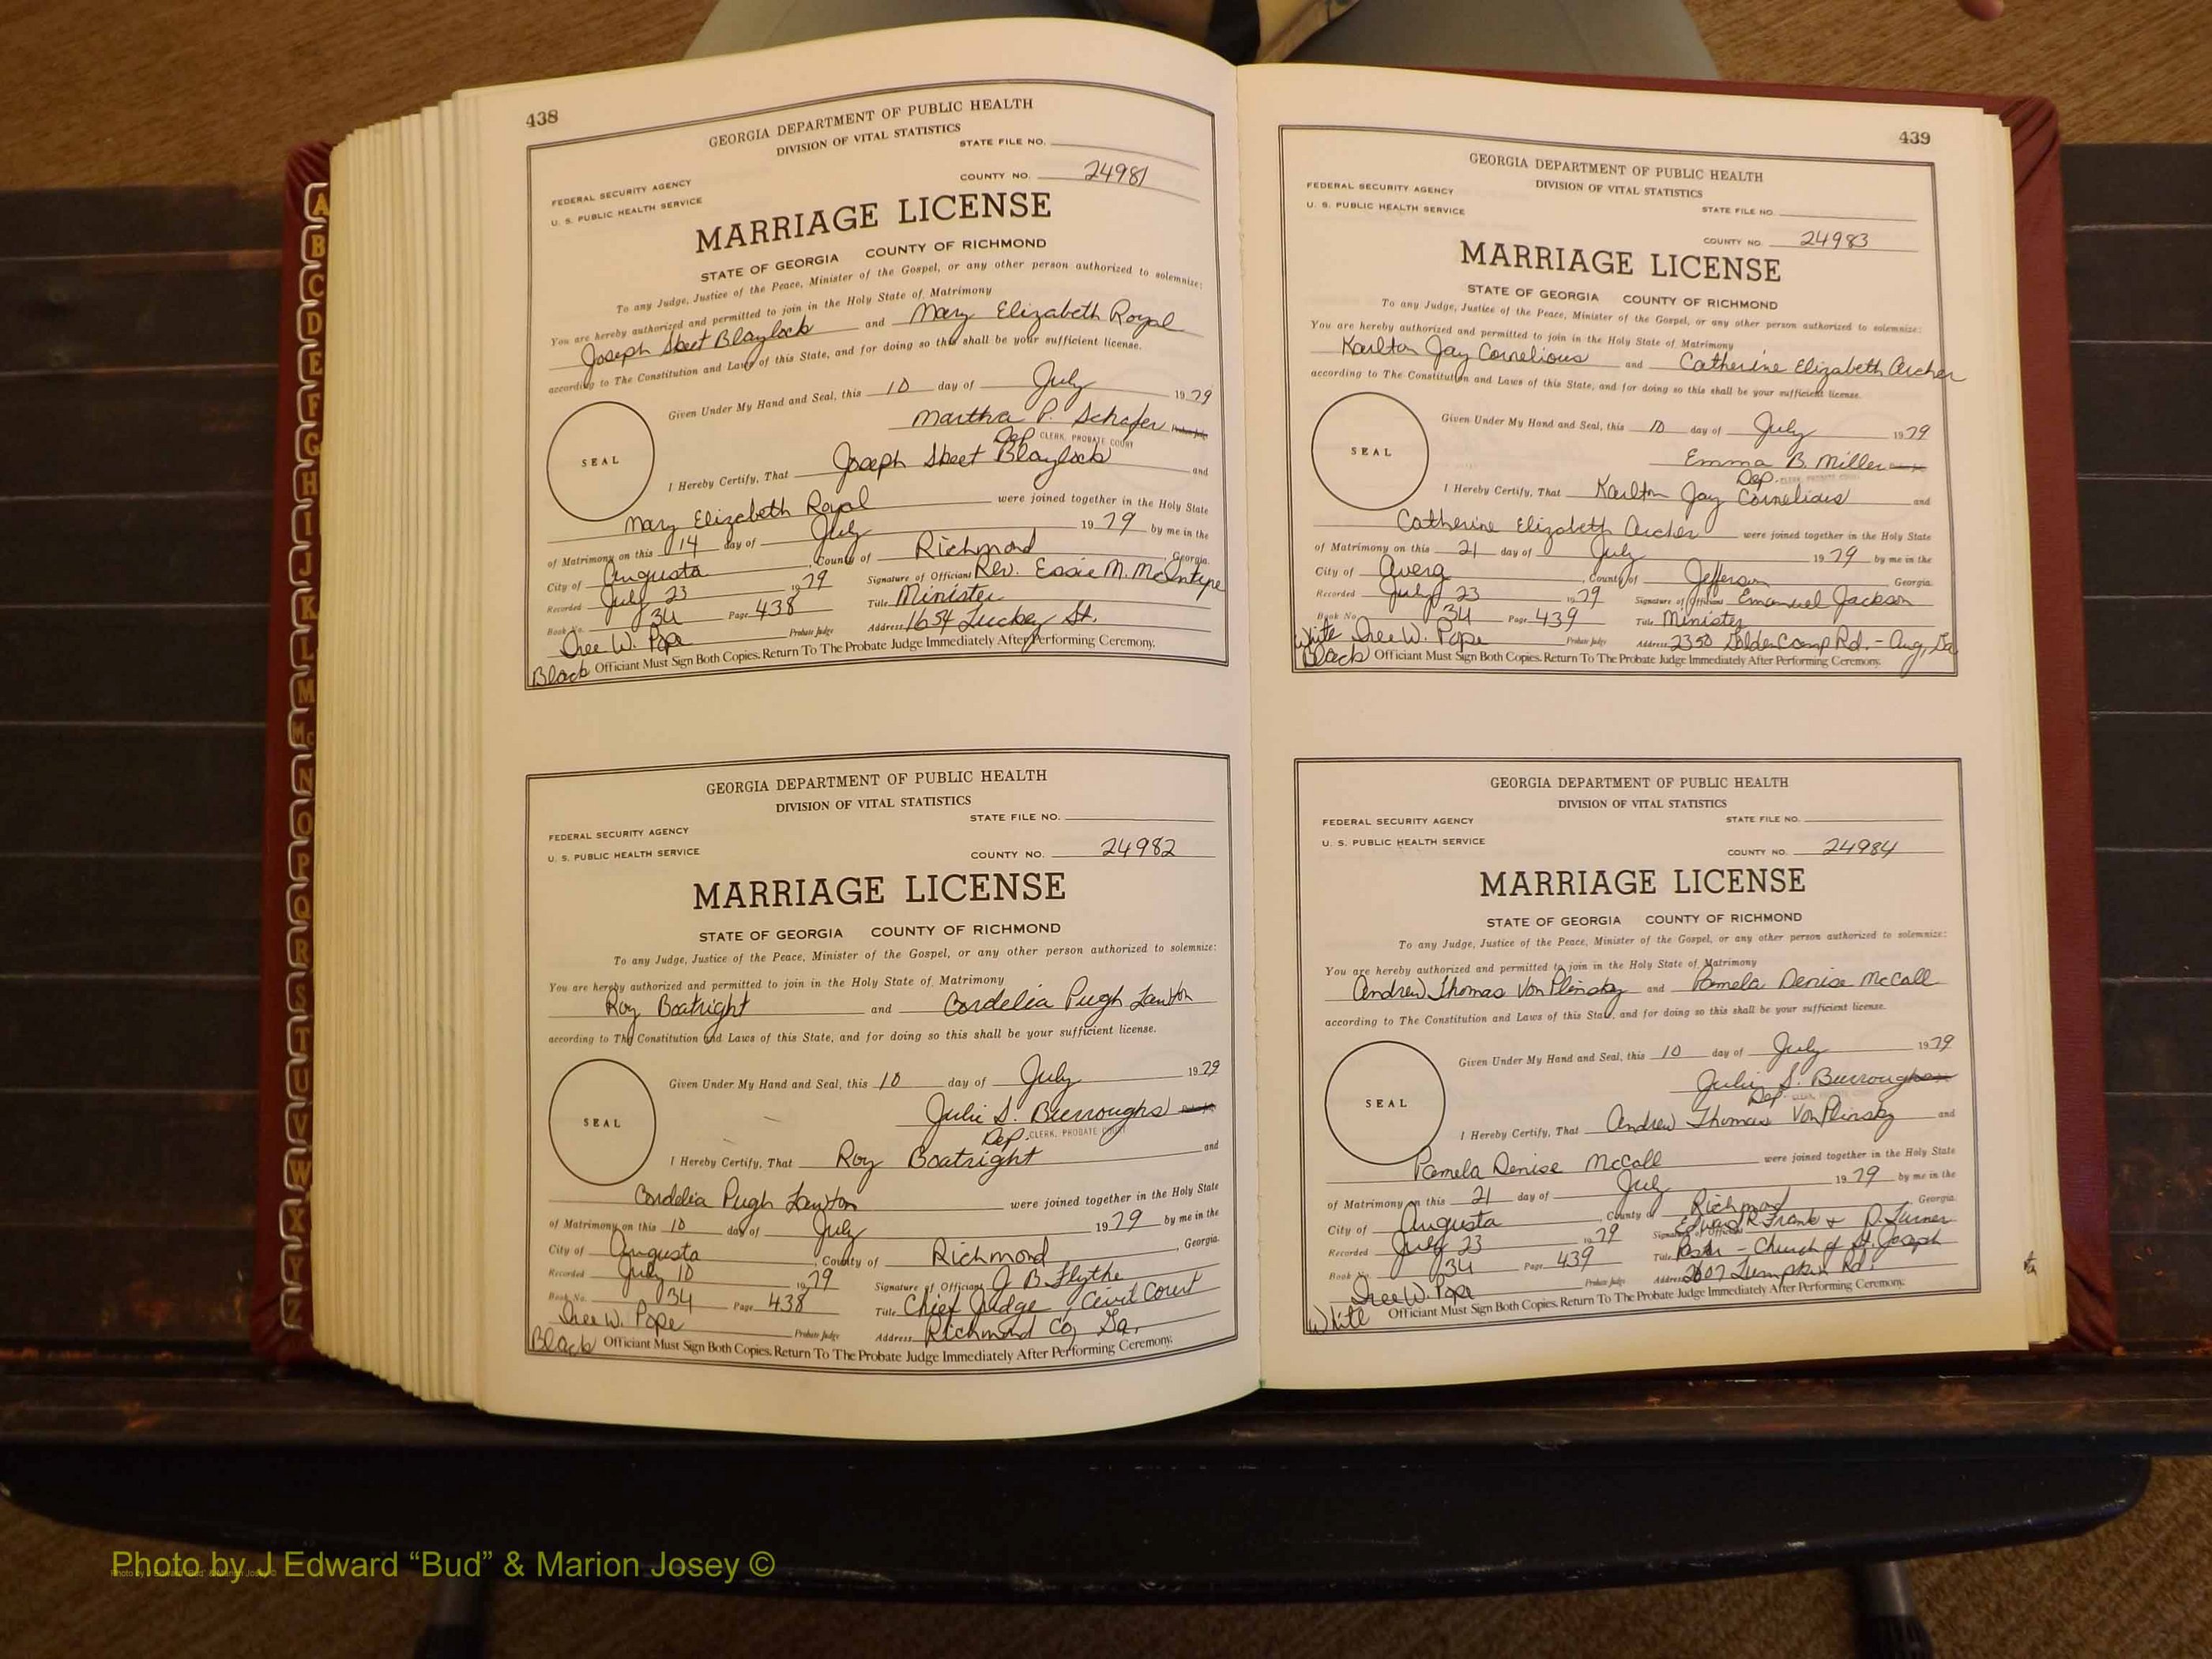 438
GEORGIA DEPARTMENT OF PUBLIC HEALTH
DIVISION OF VITAL STATISTICS
STATE FILE NO.
FEDERAL SECURITY AGENCY
COUNTY NO. 24981
U. S. PUBLIC HEALTH SERVICE
MARRIAGE LICENSE
STATE OF GEORGIA COUNTY OF RICHMOND
To any Judge, Justice of the Peace, Minister of the Gospel, or any other person authorized to solemnize:
You are hereby authorized and permitted to join in the Holy State of Matrimony
Joseph Skeet Blaylock and Mary Elizabeth Royal
according to The Constitution and Laws of this State, and for doing so this shall be your sufficient license.
Given Under My Hand and Seal, this 10 day of July 1979
Martha P. Schafer
Dep. CLERK, PROBATE COURT
SEAL
I Hereby Certify, That Joseph Skeet Blaylock and
Mary Elizabeth Royal were joined together in the Holy State
of Matrimony on this 14 day of July 1979 by me in the
City of Augusta, County of Richmond, Georgia.
Recorded July 23 1979 Signature of Officiant Rev. Essie M. McIntyre
Book No. 34 Page 438 Title Minister
Tree W. Pope Probate Judge Address 1654 Luckey St.
Black Officiant Must Sign Both Copies. Return To The Probate Judge Immediately After Performing Ceremony.
GEORGIA DEPARTMENT OF PUBLIC HEALTH
DIVISION OF VITAL STATISTICS
STATE FILE NO.
FEDERAL SECURITY AGENCY
U. S. PUBLIC HEALTH SERVICE
COUNTY NO. 24982
MARRIAGE LICENSE
STATE OF GEORGIA COUNTY OF RICHMOND
To any Judge, Justice of the Peace, Minister of the Gospel, or any other person authorized to solemnize:
You are hereby authorized and permitted to join in the Holy State of Matrimony
Roy Boatright and Cordelia Pugh Lawton
according to The Constitution and Laws of this State, and for doing so this shall be your sufficient license.
Given Under My Hand and Seal, this 10 day of July 1979
Julie S. Burroughs
Dep. CLERK, PROBATE COURT
SEAL
I Hereby Certify, That Roy Boatright and
Cordelia Pugh Lawton were joined together in the Holy State
of Matrimony on this 10 day of July 1979 by me in the
City of Augusta, County of Richmond, Georgia.
Recorded July 10 1979 Signature of Officiant J B Flythe
Book No. 34 Page 438 Title Chief Judge, Civil Court
Tree W. Pope Probate Judge Address Richmond Co, Ga.
Black Officiant Must Sign Both Copies. Return To The Probate Judge Immediately After Performing Ceremony.
439
GEORGIA DEPARTMENT OF PUBLIC HEALTH
DIVISION OF VITAL STATISTICS
FEDERAL SECURITY AGENCY
U. S. PUBLIC HEALTH SERVICE
STATE FILE NO.
COUNTY NO. 24983
MARRIAGE LICENSE
STATE OF GEORGIA COUNTY OF RICHMOND
To any Judge, Justice of the Peace, Minister of the Gospel, or any other person authorized to solemnize:
You are hereby authorized and permitted to join in the Holy State of Matrimony
Karlton Jay Cornelious and Catherine Elizabeth Archer
according to The Constitution and Laws of this State, and for doing so this shall be your sufficient license.
Given Under My Hand and Seal, this 10 day of July 1979
Emma B. Miller
Dep. CLERK, PROBATE COURT
SEAL
I Hereby Certify, That Karlton Jay Cornelious and
Catherine Elizabeth Archer were joined together in the Holy State
of Matrimony on this 21 day of July 1979 by me in the
City of Avera, County of Jefferson, Georgia.
Recorded July 23 1979 Signature of Officiant Emanuel Jackson
Book No. 34 Page 439 Title Minister
White Tree W. Pope Probate Judge Address 2350 Golden Camp Rd. - Aug, Ga
Black Officiant Must Sign Both Copies. Return To The Probate Judge Immediately After Performing Ceremony.
GEORGIA DEPARTMENT OF PUBLIC HEALTH
DIVISION OF VITAL STATISTICS
FEDERAL SECURITY AGENCY
STATE FILE NO.
U. S. PUBLIC HEALTH SERVICE
COUNTY NO. 24984
MARRIAGE LICENSE
STATE OF GEORGIA COUNTY OF RICHMOND
To any Judge, Justice of the Peace, Minister of the Gospel, or any other person authorized to solemnize:
You are hereby authorized and permitted to join in the Holy State of Matrimony
Andrew Thomas VonPlinsky and Pamela Denise McCall
according to The Constitution and Laws of this State, and for doing so this shall be your sufficient license.
Given Under My Hand and Seal, this 10 day of July 1979
Julie S. Burroughs
Dep.
SEAL
I Hereby Certify, That Andrew Thomas VonPlinsky and
Pamela Denise McCall were joined together in the Holy State
of Matrimony on this 21 day of July 1979 by me in the
City of Augusta, County of Richmond Georgia.
Recorded July 23 1979 Signature of Officiant Edward R. Frank + D. Turner
Book No. 34 Page 439 Title Pastor - Church of St. Joseph
Tree W. Pope Probate Judge Address 2607 Lumpkin Rd.
White Officiant Must Sign Both Copies. Return To The Probate Judge Immediately After Performing Ceremony.
A
B
C
D
E
F
G
H
I
J
K
L
M
Mc
N
O
P
Q
R
S
T
U
V
W
X
Y
Z
Photo by J Edward “Bud” & Marion Josey ©
Photo by J Edward “Bud” & Marion Josey ©